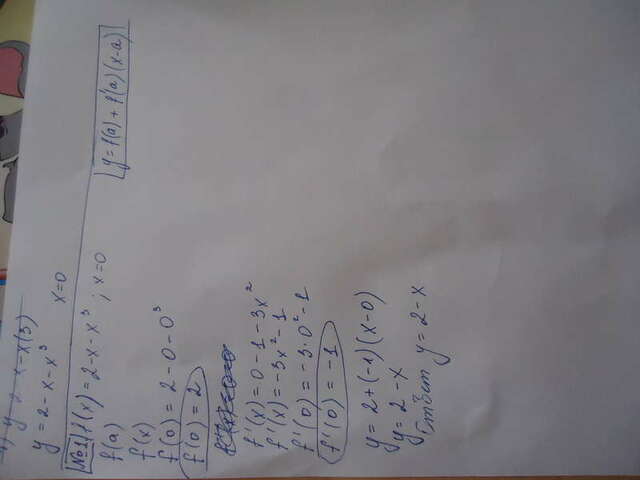 y = 2 - x - x³
x=0
№1 f(x) = 2 - x - x³ ; x=0
y = f(a) + f'(a)(x-a)
f(a)
f(x)
f(0) = 2 - 0 - 0³
f'(0) = 2
f'(x) = 0 - 1 - 3x²
f'(x) = -3x² - 1
f'(0) = -3·0² - 1
f'(0) = -1
y = 2 + (-1)(x-0)
y = 2 - x
Ответ y = 2 - x